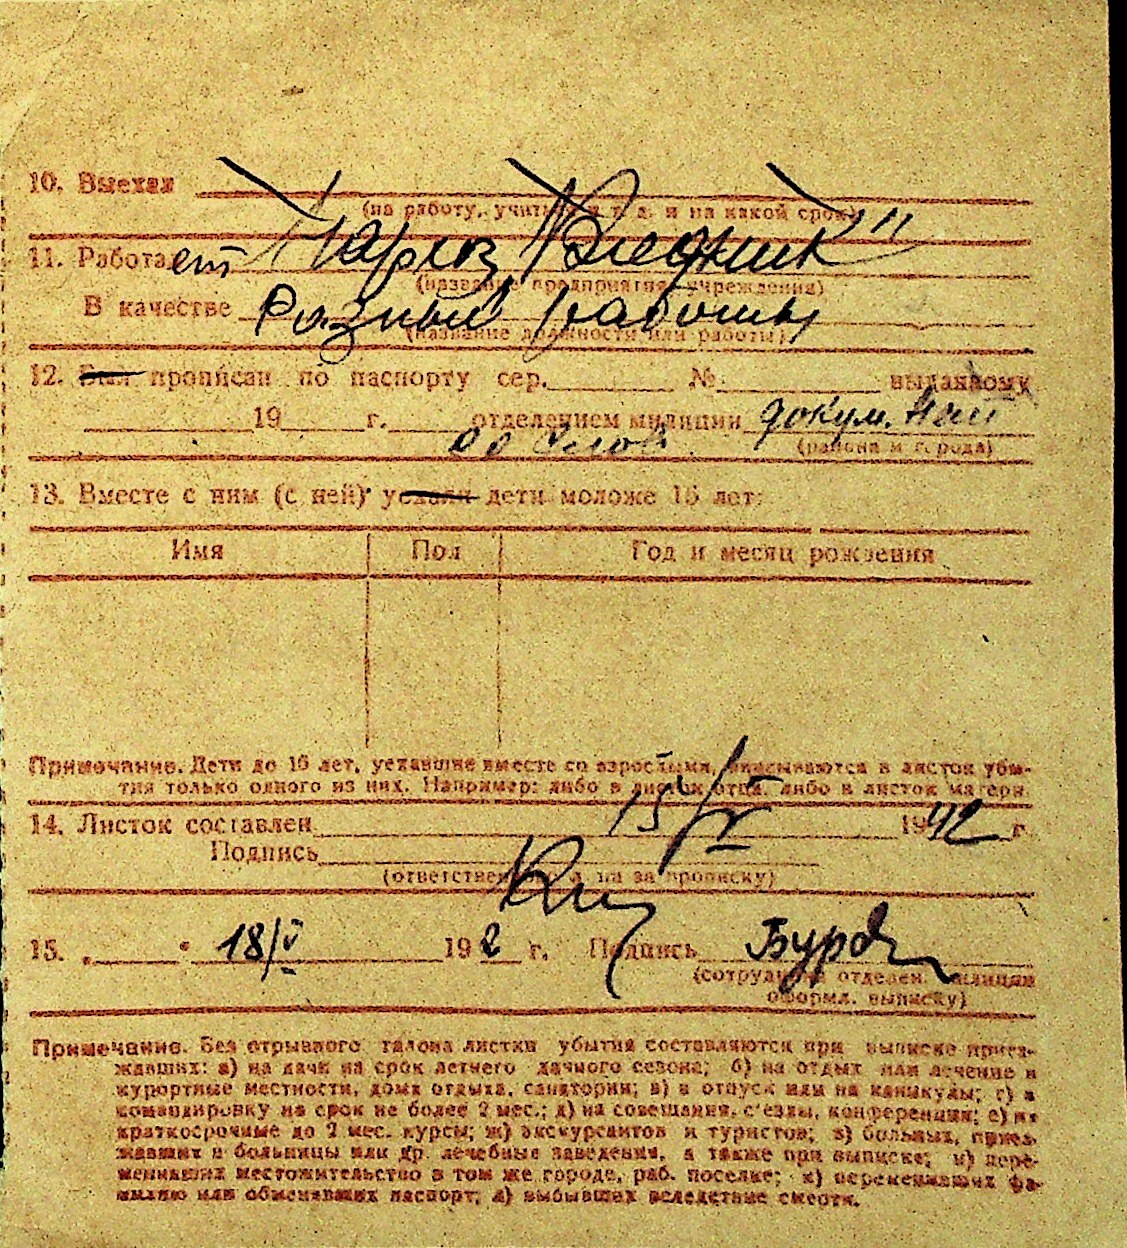 10. Выехал
(на работу, учиться и т. д. и на какой срок)
11. Работает
(название предприятия, учреждения)
В качестве Разный рабочий
(название должности или работы)
12. Был прописан по паспорту сер. № выданному
19 г. отделением милиции докум. Наст
(района и города)
со слов.
13. Вместе с ним (с ней) уехали дети моложе 16 лет:
Имя Пол Год и месяц рождения
Примечание. Дети до 16 лет, уехавшие вместе со взрослыми, вписываются в листок убы-
тия только одного из них. Например: либо в листок отца, либо в листок матери.
14. Листок составлен 15/V 1942 г.
Подпись
(ответственного л. за прописку)
15. „ " 18/V 192 г. Подпись
(сотрудника отделен. милиции
оформл. выписку)
Примечание. Без отрывного талона листки убытия составляются при выписке приез-
жавших: а) на дачи на срок летнего дачного сезона; б) на отдых или лечение в
курортные местности, дома отдыха, санатории; в) в отпуск или на каникулы; г) в
командировку на срок не более 2 мес.; д) на совещания, с'езды, конференции; е) на
краткосрочные до 2 мес. курсы; ж) экскурсантов и туристов; з) больных, приез-
жавших в больницы или др. лечебные заведения, а также при выписке; и) пере-
менивших местожительство в том же городе, раб. поселке; к) переменивших фа-
милию или обменявших паспорт; л) выбывших вследствие смерти.